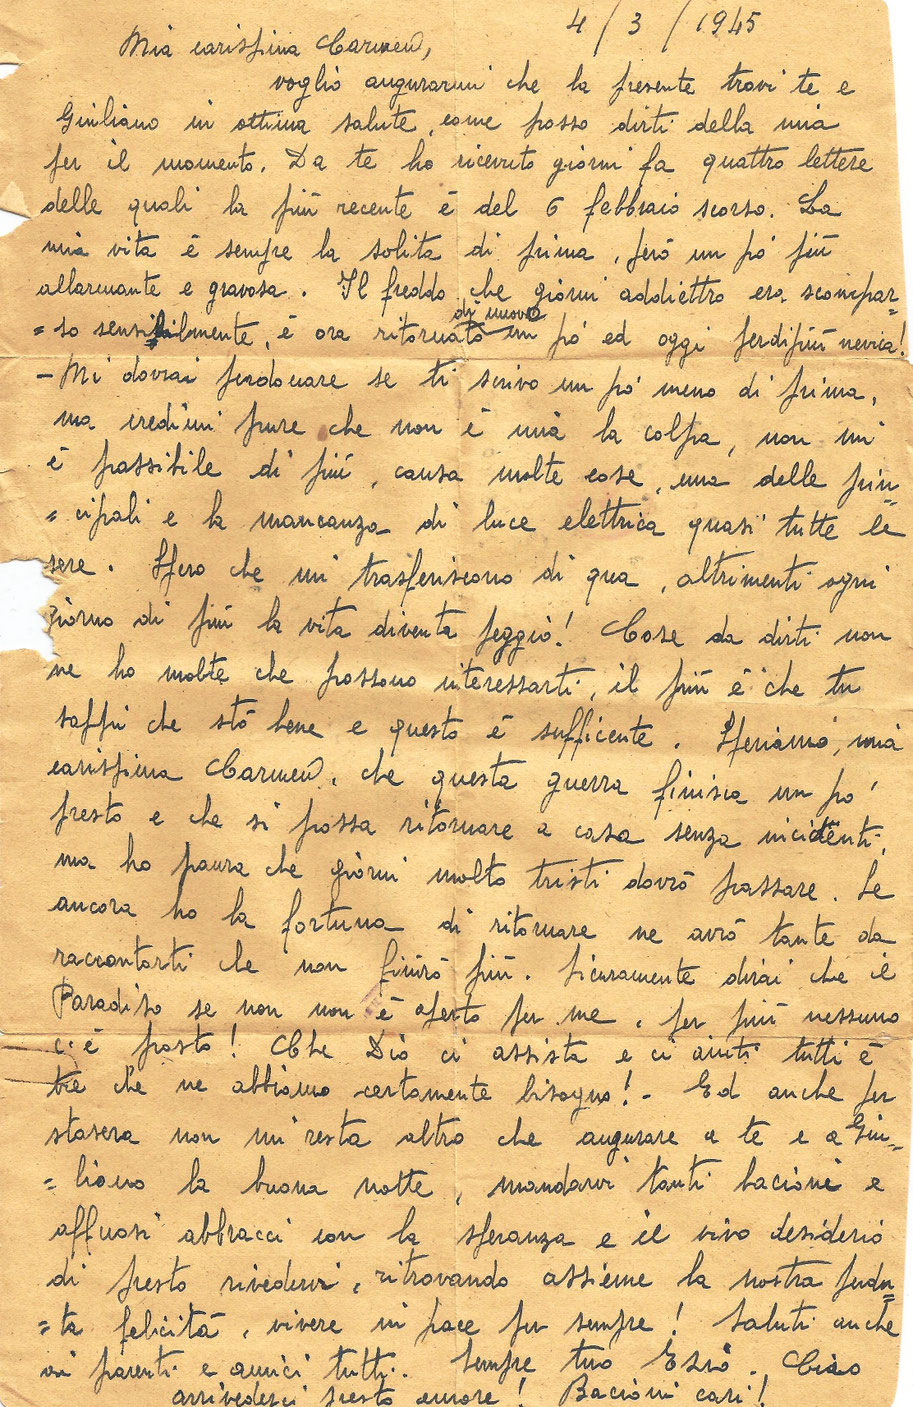 4/3/1945
Mia carissima Carmen,
voglio augurarmi che la presente trovi te e
Giuliano in ottima salute, come posso dirti della mia
per il momento. Da te ho ricevuto giorni fa quattro lettere
delle quali la più recente è del 6 febbraio scorso. La
mia vita è sempre la solita di prima, però un pò più
allarmante e gravosa. Il freddo che giorni addiettro era scompar-
di nuovo
=so sensibilmente, è ora ritornato un pò ed oggi perdipiù nevica!
-Mi dovrai perdonare se ti scrivo un pò meno di prima,
ma credimi pure che non è mia la colpa, non mi
è possibile di più, causa molte cose, una delle prin=
=cipali e la mancanza di luce elettrica quasi tutte le
sere. Spero che mi trasferiscono di qua, altrimenti ogni
giorno di più la vita diventa peggio! Cose da dirti non
ne ho molte che possono interessarti, il più è che tu
sappi che stò bene e questo è sufficente. Speriamo, mia
carissima Carmen, che questa guerra finisca un pò
presto e che si possa ritornare a casa senza incidenti,
ma ho paura che giorni molto tristi dovrò passare. Se
ancora ho la fortuna di ritornare ne avrò tante da
raccontarti che non finirò più. Sicuramente dirai che il
Paradiso se non non è aperto per me, per più nessuno
c'è posto! Che Dio ci assista e ci aiuti tutti è
tre che ne abbiamo certamente bisogno!- Ed anche per
stasera non mi resta altro che augurare a te e a Giu=
=liano la buona notte, mandarvi tanti bacioni e
affuosi abbracci con la speranza e il vivo desiderio
di presto rivedervi, ritrovando assieme la nostra perdu=
=ta felicità, vivere in pace per sempre! Saluti anche
ai parenti e amici tutti. Sempre tuo Ezio. Ciao
arrivederci presto amore! Bacioni cari!